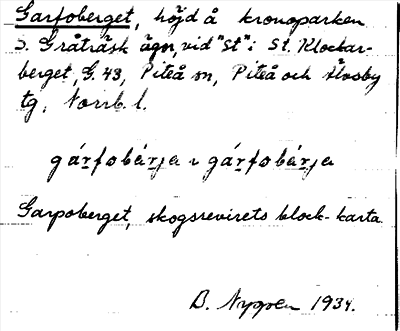 Garfoberget, höjd å kronoparken
S. Gråträsk ägor, vid "St" i St. Klockar-
berget, G. 43, Piteå sn, Piteå och Älvsby
tg, Norrb. l.
gárfobárja ı gárfobárja
Garpoberget, skogsrevirets block-karta.
B. Nygren 1934.